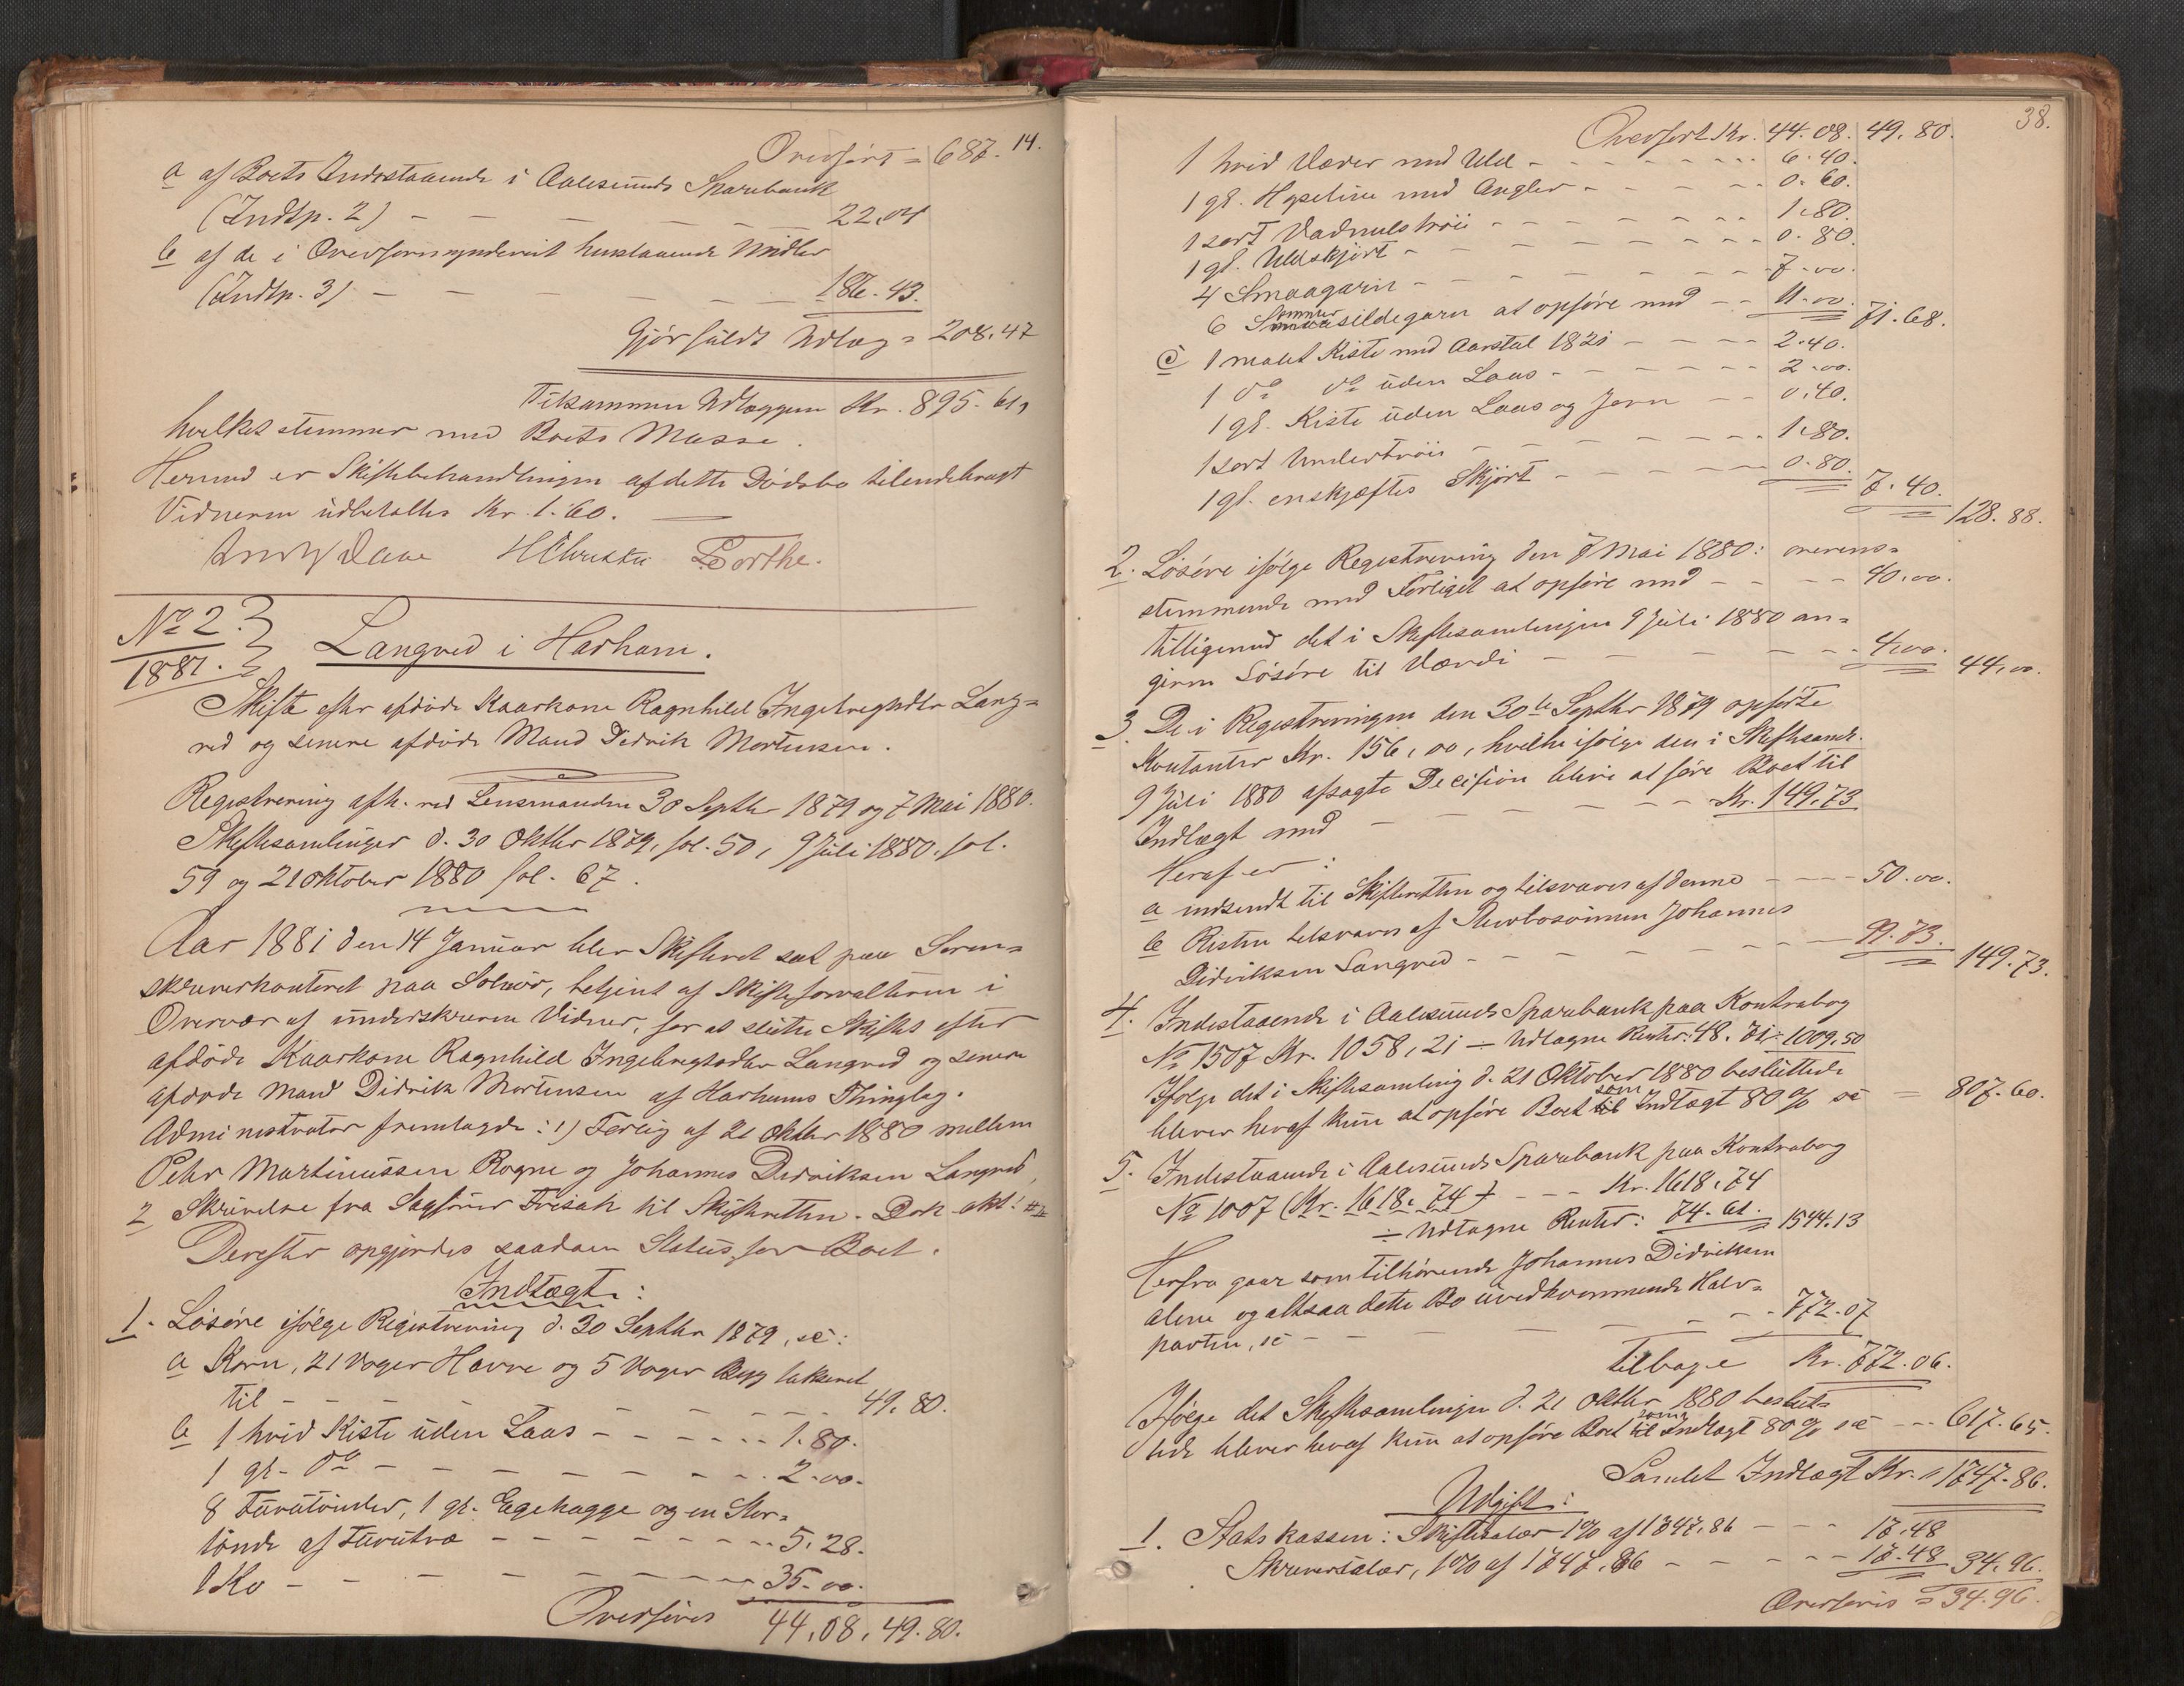 Overført = 687. 14.
a af Boets Indestaaende i Aalesunds Sparebank
(Indtp. 2) - - - - - 22,04
b af de i Overformynderiet henstaaende Midler
(Indtp. 3) - - - - - 186.43.
Gjør fuldt Udlæg = 208,47
Tilsammen Udlæggene Kr. 895.61,
hvilket stemmer med Boets Masse.
Hermed er Skiftebehandlingen af dette Dødsbo tilendebragt
Vidnerne udbetaltes Kr. 1.60.
HChristie
No 2.
1881.
Langved i Harham.
Skifte efter afdøde Kaarkone Ragnhild Ingebregtsdtr Lang-
ved og senere afdøde Mand Didrik Mortensen.
Registrering afh. ved Lensmanden 30 Septbr 1879 og 7 Mai 1880.
Skiftesamlinger d. 30 Oktbr 1879, fol. 50, 9 Juli 1880. fol.
59 og 21 Oktober 1880 fol. 67.
Aar 1881 den 14 Januar blev Skifteret sat paa Soren-
skriverkontoret paa Solnør, betjent af Skifteforvalteren i
Overvær af underskrevne Vidner, for at slutte Skiftet efter
afdøde Kaarkone Ragnhild Ingebregtsdtr Langved og senere
afdøde Mand Didrik Mortensen af Harhams Thinglag.
Administrator fremlagde: 1) Forlig af 21 Oktbr 1880 mellem
Peter Martinussen Rogne og Johannes Didriksen Langved,
2 Skrivelse fra Sagfører Frisak til Skifteretten. Dok. akt:
Derefter opgjordes saadan Status for Boet.
Indtægt:
1. Løsøre ifølge Registrering d. 30 Septbr 1879, s.e:
a Korn, 21 Voger Havre og 5 Voger Byg takseret
til - - - - - 49.80.
b 1 hvid Kiste uden Laas - - - - - 1.80.
1 gl. do - - - - - 2.00.
8 Furutønder, 1 gl. Egehagge og en Stor-
tønde af Furutræ - - - - - 5.28.
1 Ko - - - - - 35.00.
Overføres 44,08, 49.80.
38.
Overført Kr. 44.08. 49.80.
1 hvid Væder med Uld - - - - - 6.40.
1 gl. Hyseline med Angler - - - - - 0.60.
1 sort Vadmelstrøie - - - - - 1.80.
1 gl. Uldskjørt - - - - - 0.80.
4 Smaagarn - - - - - 7.00.
6 Sommersildegarn at opføre med - - 11.00. 71.68.
c 1 malet Kiste med Aarstal 1821 - - - - 2.40.
1 do do uden Laas - - - - - 2.00.
1 gl. Kiste uden Laas og Jern - - 0.40.
1 sort Undertrøie - - - - - 1.80.
1 gl. enskjæftes Skjørt - - - - - 0.80. 7.40.
128.88.
2. Løsøre ifølge Registrering den 7 Mai 1880: overens-
stemmende med Forliget at opføre med - - - - 40.00.
tilligemed det i Skiftesamlingen 9 Juli 1880 an-
givne Løsøre til Værdi - - - - - 4,00. 44,00.
3. De i Registreringen den 30te Septbr 1879 opførte
Kontanter Kr. 156,00, hvilke ifølge den i Skiftesaml.
9 Juli 1880 afsagte Decision blive at føre Boet til
Indtægt med - - - - - Kr. 149.73
Heraf er:
a indsendt til Skifteretten og tilsvares af denne - - - 50.00.
b Resten tilsvares af Stervbosønnen Johannes
Didriksen Langved - - - - - 99.73. 149.73.
4. Indestaaende i Aalesunds Sparebank paa Kontrabog
No 1507 Kr. 1058,21 ÷ Udtagne Renter: 48.71 = 1009.50
Ifølge det i Skiftesamling d. 21 Oktober 1880 besluttede
bliver heraf kun at opføre Boet til som Indtægt 80% s.e = 807.60.
5. Indestaaende i Aalesunds Sparebank paa Kontrabog
No 1007 (Kr. 1618.74) - - - Kr. 1618.74
÷ Udtagne Renter: 74.61. 1544.13
Herfra gaar som tilhørende Johannes Didriksen
alene og altsaa dette Bo uvedkommende Halv-
parten, s.e - - - - - 772.07
tilbage Kr. 772.06.
Ifølge det Skiftesamlingen d. 21 Oktbr 1880 beslut-
tede bliver heraf kun at opføre Boet til som Indtægt 80% s.e - - 617.65.
Samlet Indtægt Kr. 1747.86.
Udgift:
1. Statskassen: Skiftesalær 1% af 1747.86 - - - 17.48
Skriversalær, 1% af 1747.86 - - - - - 17.48 34.96.
Overføres = 34.96.